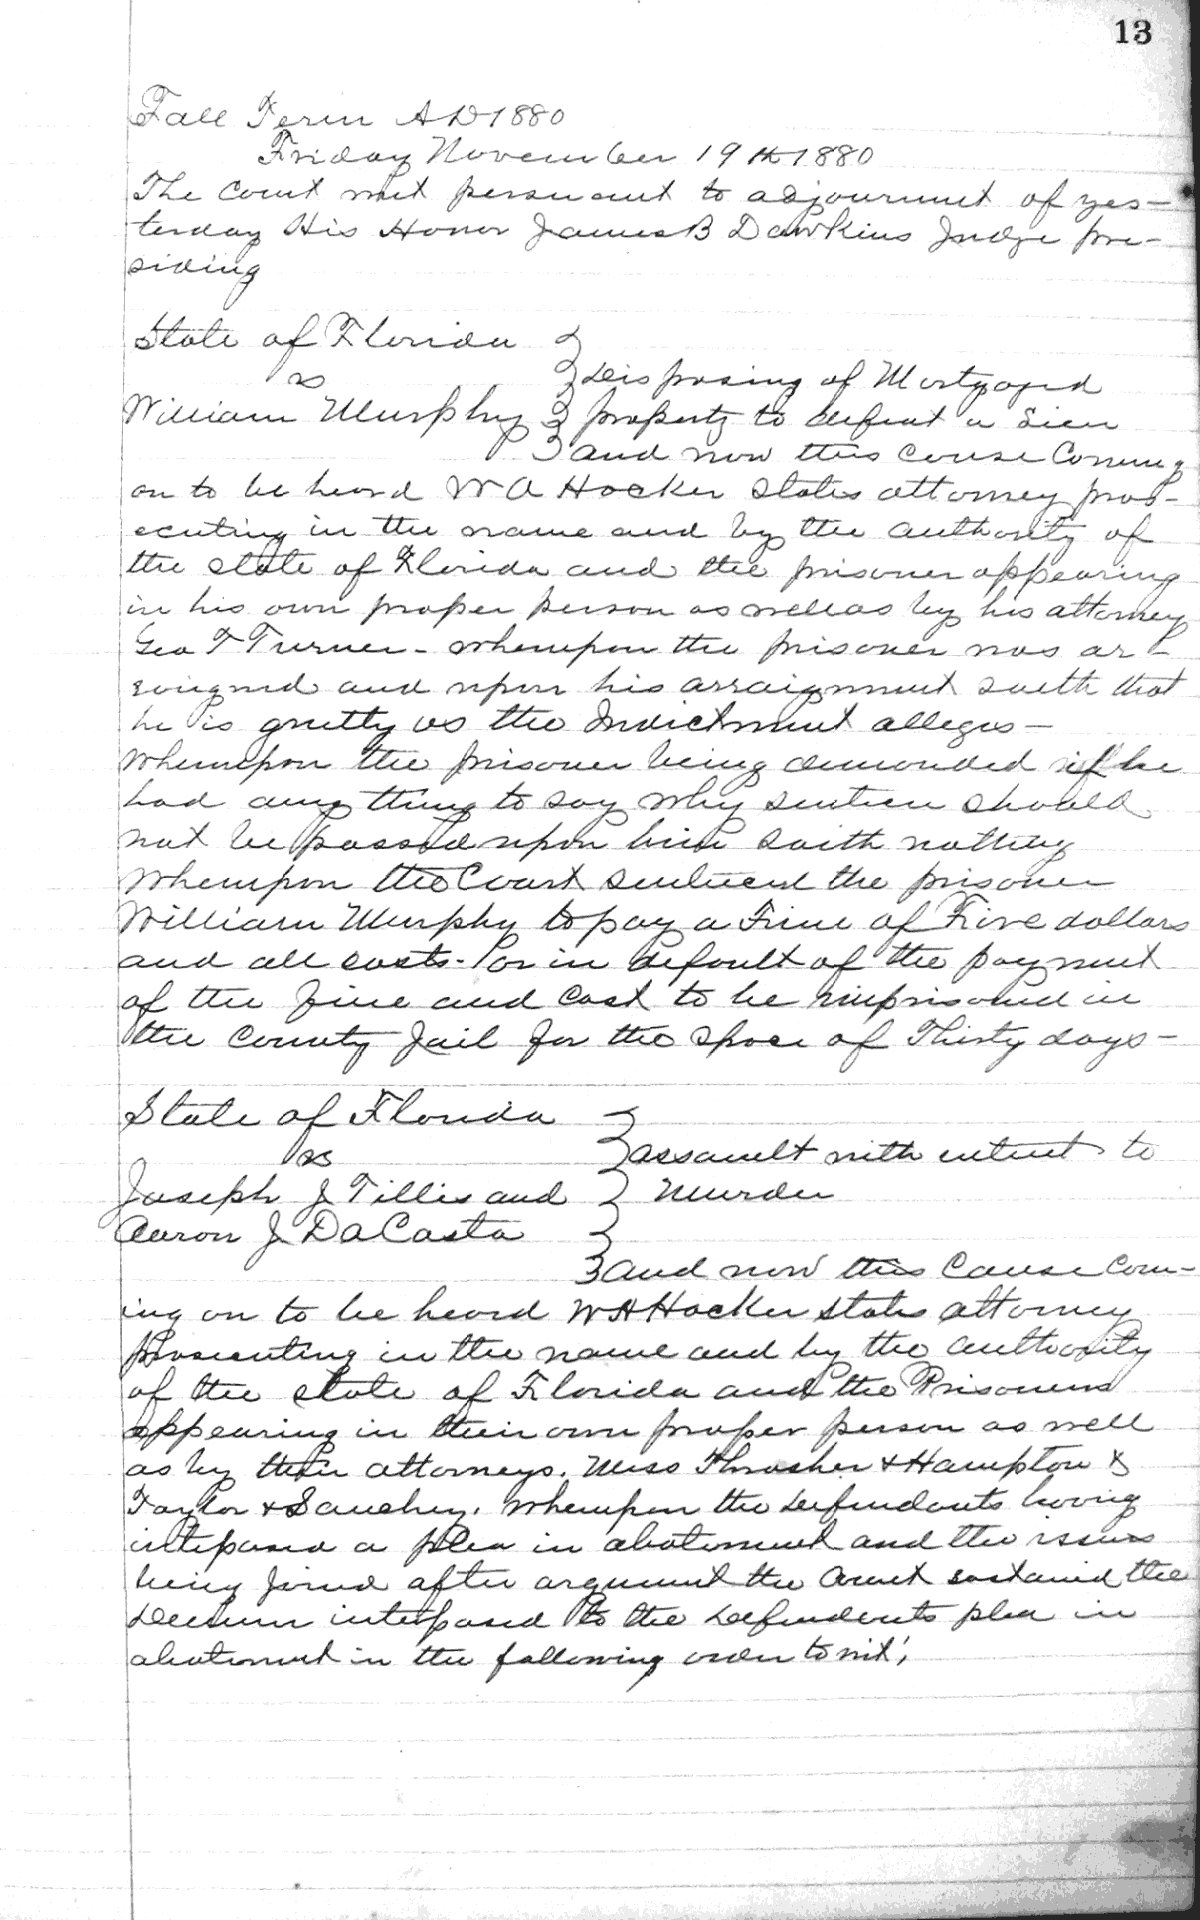 13
Fall Term A D 1880
Friday November 19th 1880
The Court met persuant to adjournmt of yes-
terday His Honor James B Dawkins Judge pre-
siding
State of Florida
vs
Disposing of Mortgaged
William Murphy property to defeat a Lien
and now this couse Coming
on to be heard W A Hocker States attorney pros-
ecuting in the name and by the authority of
the state of Florida and the prisoner appearing
in his own proper person as well as by his attorney
Geo T Turner - whereupon the prisoner was ar-
raigned and upon his arraignment saith that
he is guilty as the Indictment alleges -
Whereupon the prisoner being demanded if he
had any thing to say why sentence should
not be passed upon him saith nothing
Whereupon the Court sentenced the prisoner
William Murphy to pay a Fine of Five dollars
and all costs - or in default of the payment
of the fine and Cost to be imprisoned in
the County Jail for the space of Thirty days -
State of Florida
vs
assault with intent to
Joseph J Tillis and Murder
Aaron J DaCosta
and now this Cause com-
ing on to be heard W A Hocker states attorney
prosecuting in the name and by the authority
of the state of Florida and the Prisoners
appearing in their own proper person as well
as by their attorneys. Mess Thrasher & Hampton &
Taylor & Sanchez. Whereupon the Defendants having
interposed a plea in abatement and the issue
being joined after argument the Court sustained the
interposed to the Defendents plea in
abatement in the following order to wit;